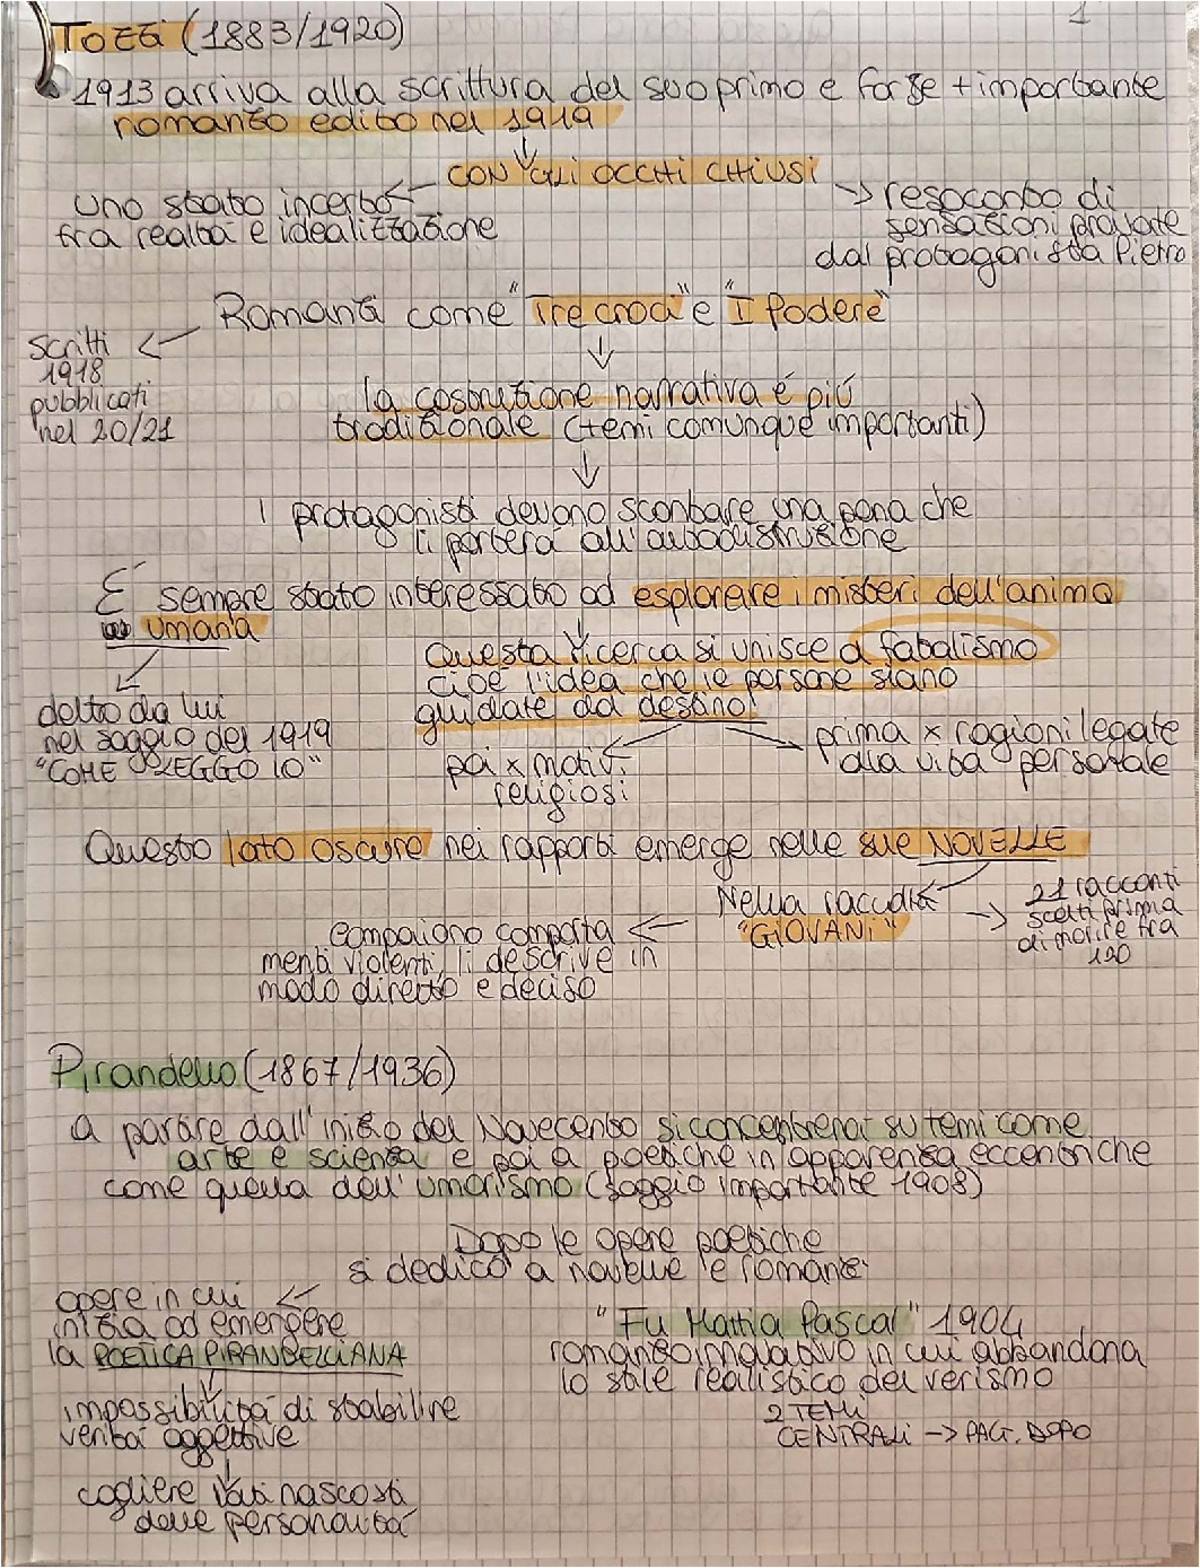 1
TOZZI (1883/1920)
1913 arriva alla scrittura del suo primo e forse + importante
romanzo edito nel 1919
CON GLI OCCHI CHIUSI
uno stato incerto
fra realtà e idealizzazione
resoconto di
sensazioni provate
dal protagonista Pietro
Romanzi come "Tre croci" e "I Podere"
Scritti
1918
pubblicati
nel 20/21
la costruzione narrativa é più
tradizionale (temi comunque importanti)
I protagonisti devono scontare una pena che
li porterà all'autodistruzione
É sempre stato interessato ad esplorare i misteri dell'anima
umana
Questa ricerca si unisce a fatalismo
cioè l'idea che le persone siano
guidate da destino!
detto da lui
nel saggio del 1919
"COME LEGGO IO"
poi x motivi
religiosi
prima x ragioni legate
alla vita personale
Questo lato oscuro nei rapporti emerge nelle sue NOVELLE
Nella raccolta
"GIOVANI"
21 racconti
scelti prima
di morire fra
120
Compaiono comporta
menti violenti, li descrive in
modo diretto e deciso
Pirandello (1867/1936)
a partire dall'inizio del Novecento si concentrerà su temi come
arte e scienza e poi a poetiche in apparenza eccentriche
come quella dell'umorismo (saggio importante 1908)
Dopo le opere poetiche
si dedicò a novelle e romanzi
opere in cui
inizia ad emergere
la POETICA PIRANDELLIANA
impossibilità di stabilire
verità oggettive
cogliere lati nascosti
delle personalità
"Fu Mattia Pascal" 1904
romanzo innovativo in cui abbandona
lo stile realistico del verismo
2 TEMI
CENTRALI -> PAG. DOPO